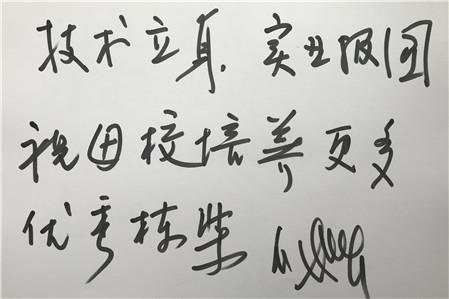 技术立身 实业报国
祝母校培养更多
优秀栋梁